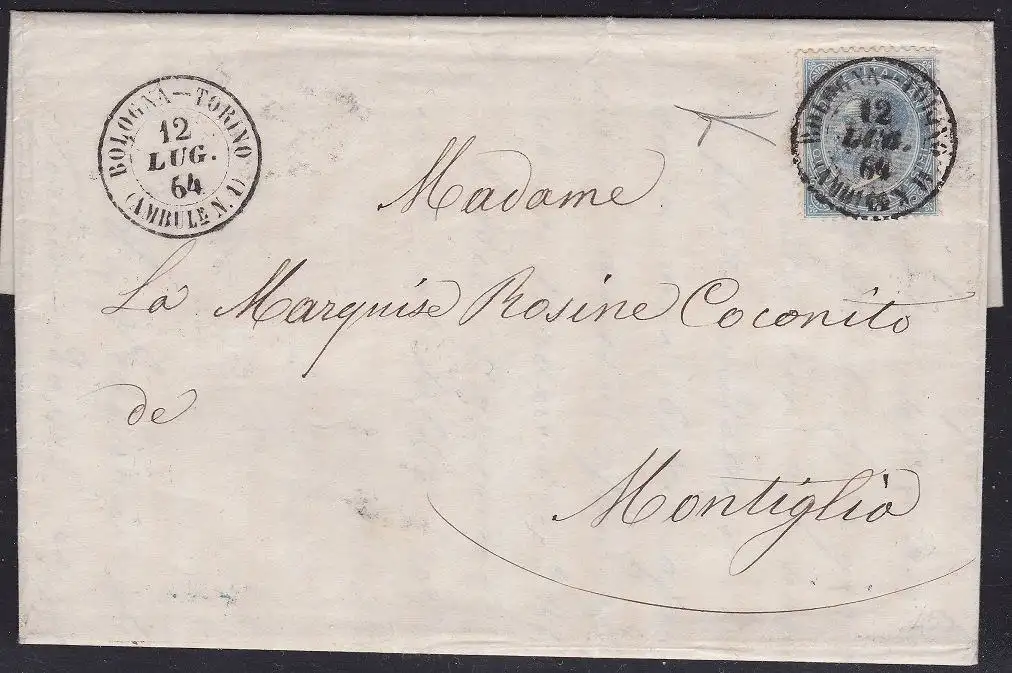 BOLOGNA — TORINO
12
LUG.
64
(AMBULE N. 1)
BOLOGNA — TORINO
12
LUG.
64
Madame
La Marquise Rosine Coconito
de
Montiglio